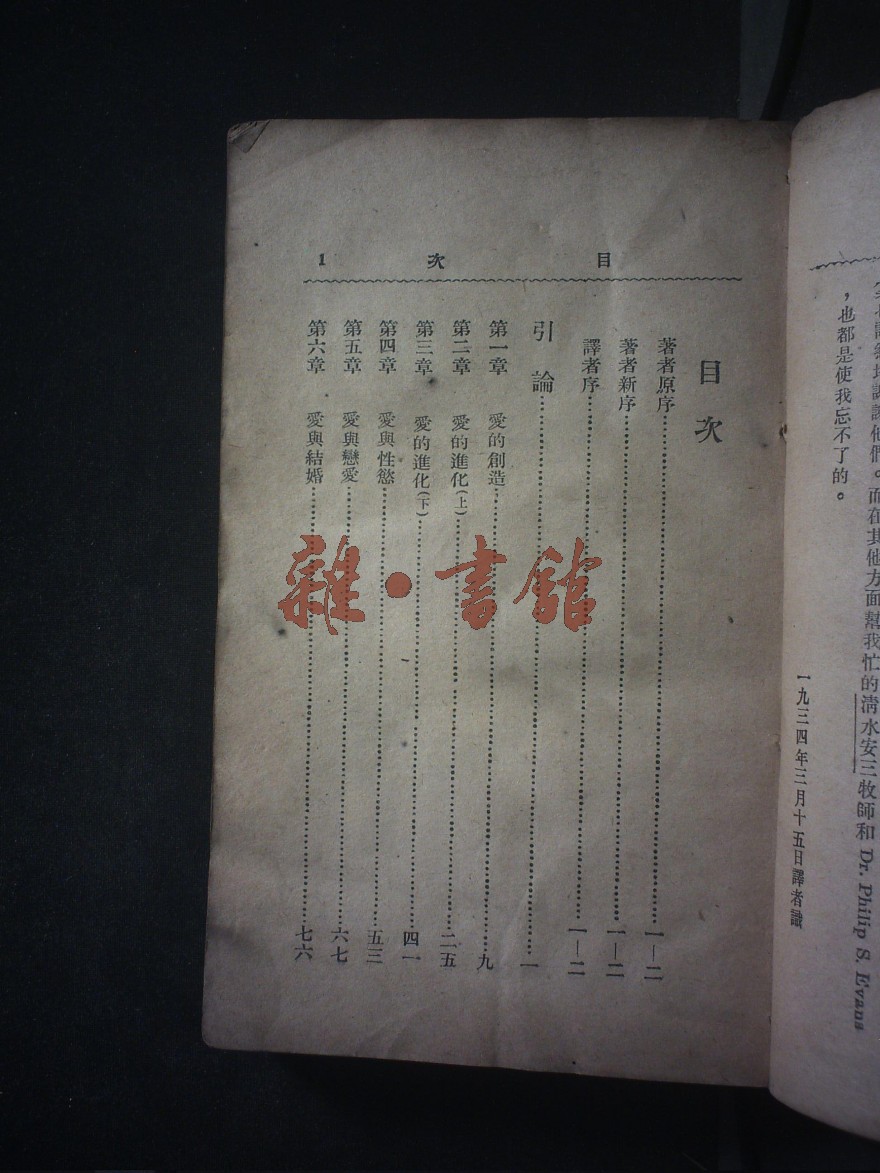 ，也都是使我忘不了的。
而在其他方面幫我忙的清水安三牧師和 Dr. Philip S. Evans
一九三四年三月十五日譯者識
目 次 1
目次
著者原序……一—二
著者新序……一—二
譯者序……一—二
引論……一
第一章 愛的創造……九
第二章 愛的進化(上)……二五
第三章 愛的進化(下)……四一
第四章 愛與性慾……五三
第五章 愛與戀愛……六七
第六章 愛與結婚……七六
雜·書館